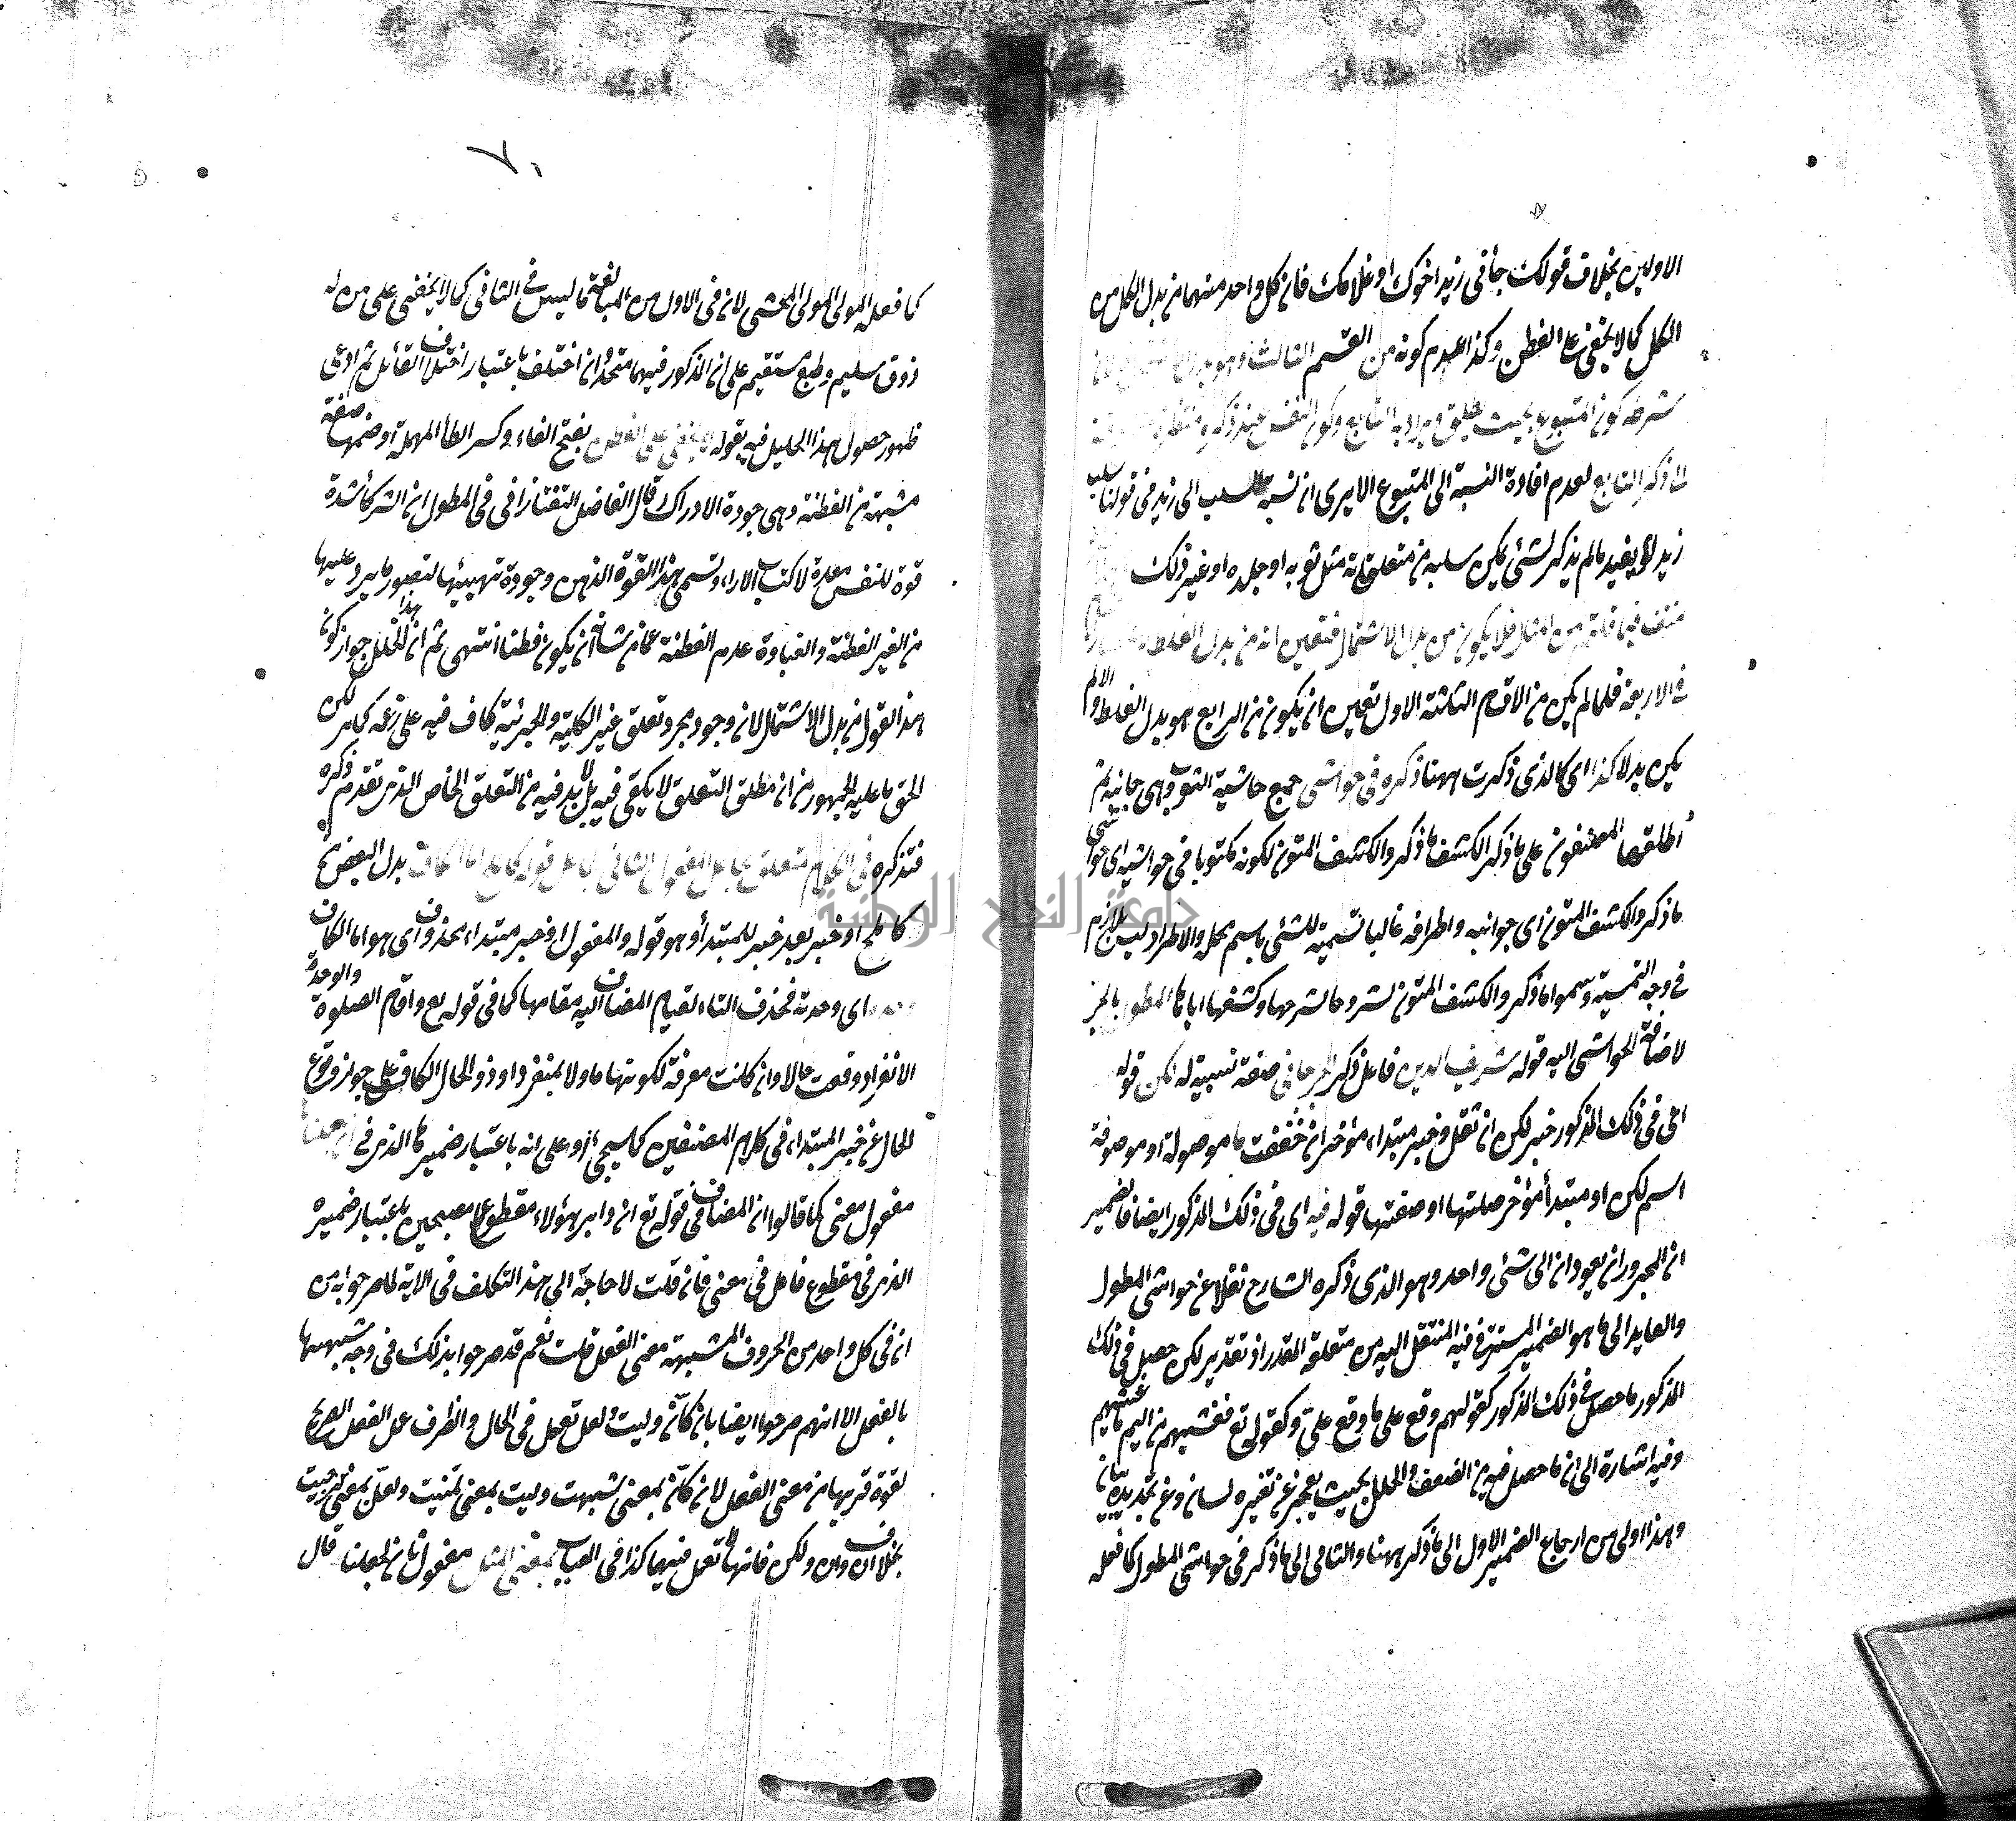 الاولين بخلاف قولك جأنى زيد اخوك او غلامك فان كل واحد منهما من بدل الكل من
الكل كما لا يخفى على الفطن وكذا لعدم كونه من القسم الثالث وهو بدل
شرطه كون المتبوع بحيث يطلق ويراد به التابع وكون النفس عند ذكره منتظرة
الى ذكر التابع لعدم افادة النسبة الى المتبوع الا يرى ان نسبة السلب الى زيد فى قولنا سلب
زيد لا يفيد ما لم يذكر لشئ يمكن سلبه من متعلقاته مثل ثوبه او جلده او غير ذلك
منتف فيما قلتم من المثل فلا يكون من بدل الاشتمال فتعين انه من بدل الغلط
فى الاربعة فلما لم يكن من الاقسام الثلثة الاول تعين ان يكون من الرابع هو بدل الغلط والا لم
يكن بدلا كذا اى كالذى ذكرت ههنا ذكره فى حواشى جمع حاشية الثوب وهى جانبه ثم
اطلقها المصنفون على ما ذكر الكشف ما ذكر والكشف المتون لكونه مكتوبا فى حواشيه اى حواشى
ما ذكر والكشف المتون اى جوانبه واطرافه غالبا تسمية للشئ باسم محله والاطراد ليس بلازم
فى وجه التسمية وسموا ما ذكر والكشف المتون شروحا لشرحها وكشفها اياها المطول بالجر
لاضافة الحواشى اليه قوله شريف الدين فاعل ذكر الجرجانى صفة نسبية له لكن قوله
اى فى ذلك المذكور خبر لكن ان ثقل وخبر مبتداء مؤخر ان خففت ما موصولة او موصوفة
اسم لكن او مبتدأ مؤخر صلتها او صفتها قوله فيه اى فى ذلك المذكور ايضا فالضمير
ان المجروران يعودان الى شئ واحد وهو الذى ذكره الشارح نقلا عن حواشى المطول
والعايد الى ما هو الضمير المستتر فى فيه المنتقل اليه من متعلقه المقدر اذ تقدير لكن حصل فى ذلك
المذكور ما حصل فى ذلك المذكور كقولهم وقع على ما وقع على وكقوله تع فغشيهم من اليم ما غشيهم
وفيه اشارة الى ان ما حصل فيه من الضعف والخلل بحيث يعجز عن تغييره لسان وعن تحديده بيان
وهذا اولى من ارجاع الضمير الاول الى ما ذكر ههنا والثانى الى ما ذكر فى حواشى المطول كما فعله
كما فعله المولى المولى المحشى لان فى الاول من المبالغة ما ليس فى الثانى كما لا يخفى على من له
ذوق سليم وطبع مستقيم على ان المذكور فيهما متحد وان اختلف باعتبار اختلاف القائل ثم ادعى
ظهور حصول هذا الخليل فيه بقوله لا يخفى على الفطن بفتح الفاء وكسر الطأ المهملة او ضمها صفة
مشبهة من الفطنة وهى جودة الادراك قال الفاضل التفتازانى فى المطول ان الذكاء شدة
قوة للنفس معدة لاكتساب الاراء وتسمى هذه القوة الذهن وجودة تهيئها لتصور ما يرد عليها
من الغير الفطنة والغباوة عدم الفطنة عما من شانه ان يكون فطنا انتهى ثم ان هذا الخلل جواز كون
هذا القول من بدل الاشتمال لان وجود مجرد تعلق غير الكلية والجزئية كاف فيه على زعمه كما مر لكن
الحق ما عليه الجمهور من ان مطلق التعلق لا يكفى فيه بل لابد فيه من التعلق الخاص الذى تقدم ذكره
فتذكره فى الكلام متعلق بجاعل المفعول الثانى لجاعل قوله كاملح اما الكاف بدل البعض
كاملح او خبر بعد خبر للمبتدأ وهو قوله والمفعول او خبر مبتداء محذوف اى هو اما الكاف
وحده اى وحدته فحذف التاء لقيام المضاف اليه مقامها كما فى قوله تع واقام الصلوة والوحدة
الانفراد وقعت حالا وان كانت معرفة لكونها ماولا بمنفردا وذو الحال الكاف على جواز وقوع
الحال عن خبر المبتداء فى كلام المصنفين كما سيجئ او على انه باعتبار ضميرها الذى فى
مفعول معنى كما قالوا ان المضاف فى قوله تع ان دابر هؤلاء مقطوع مصبحين باعتبار ضميره
الذى فى مقطوع فاعل فى معنى فان قلت لا حاجة الى هذا التكلف فى الاية لما صرحوا به من
ان فى كل واحد من الحروف المشبهة معنى الفعل قلت نعم قد صرحوا بذلك فى وجه شبهها
بالفعل الا انهم صرحوا ايضا بان كأن وليت ولعل تعمل فى الحال والظرف عمل الفعل الصريح
لقوة قربها من معنى الفعل لان كأن بمعنى شبهت وليت بمعنى تمنيت ولعل بمعنى ترجيت
بخلاف ان وان ولكن فانها لا تعمل فيهما كذا فى العباب بمعنى المثل مفعول ثان لجعلنا قال
جامعة النجاح الوطنية